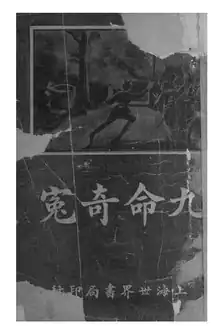 九命奇冤
上
上海世界書局印